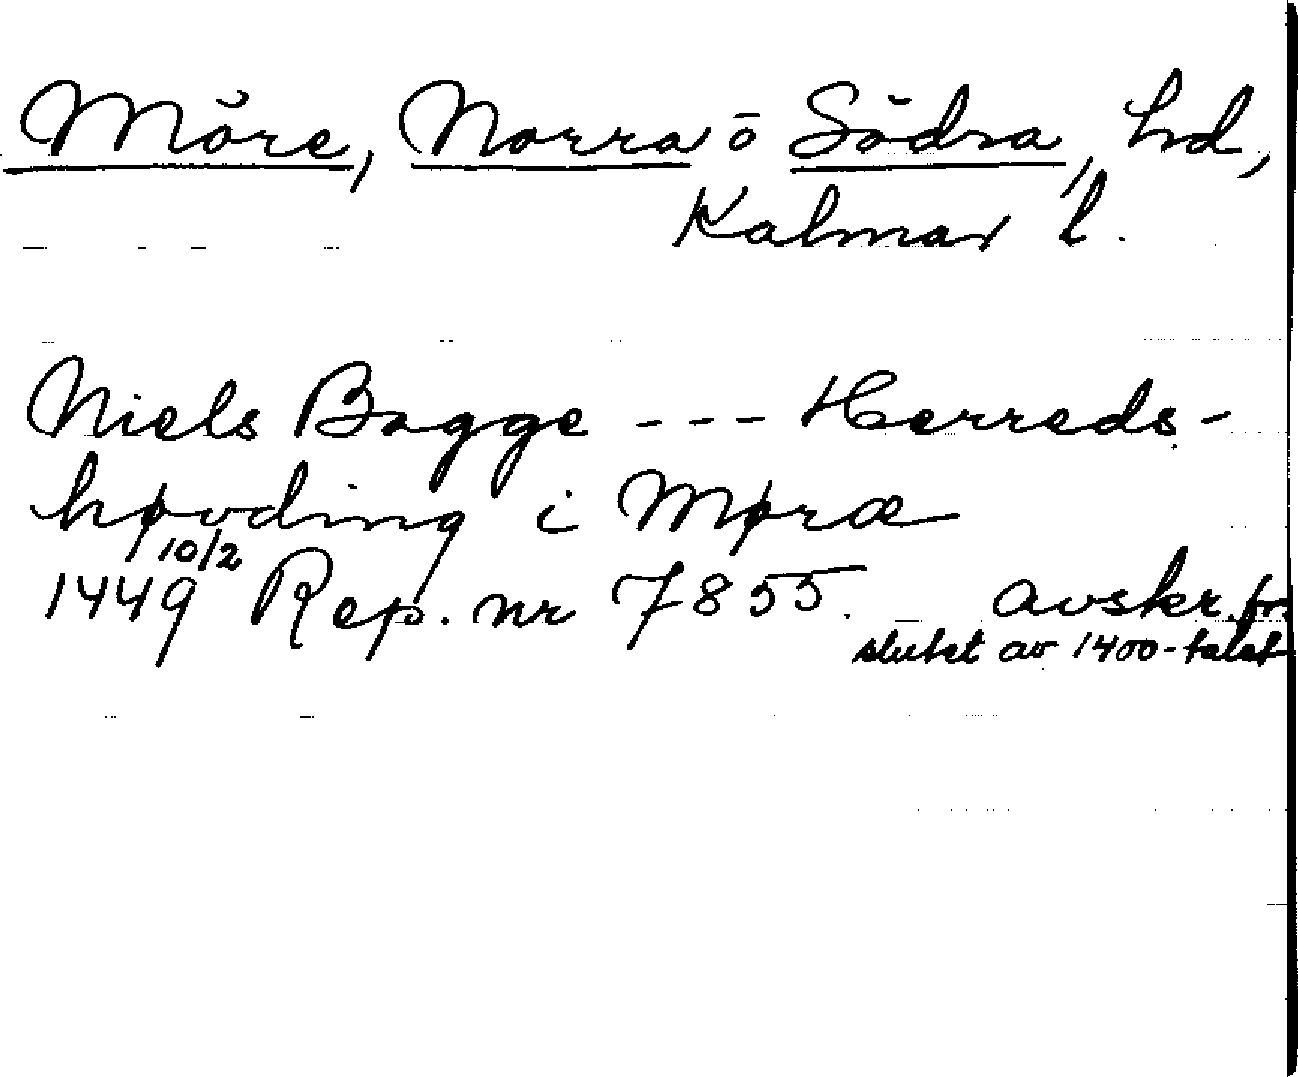 Möre, Norra o Södra, hd,
Kalmar l.
Niels Bagge --- Herreds-
høvding i Møræ
10/2
1449 Rep. nr 7855. avskr. fr.
slutet av 1400-talet